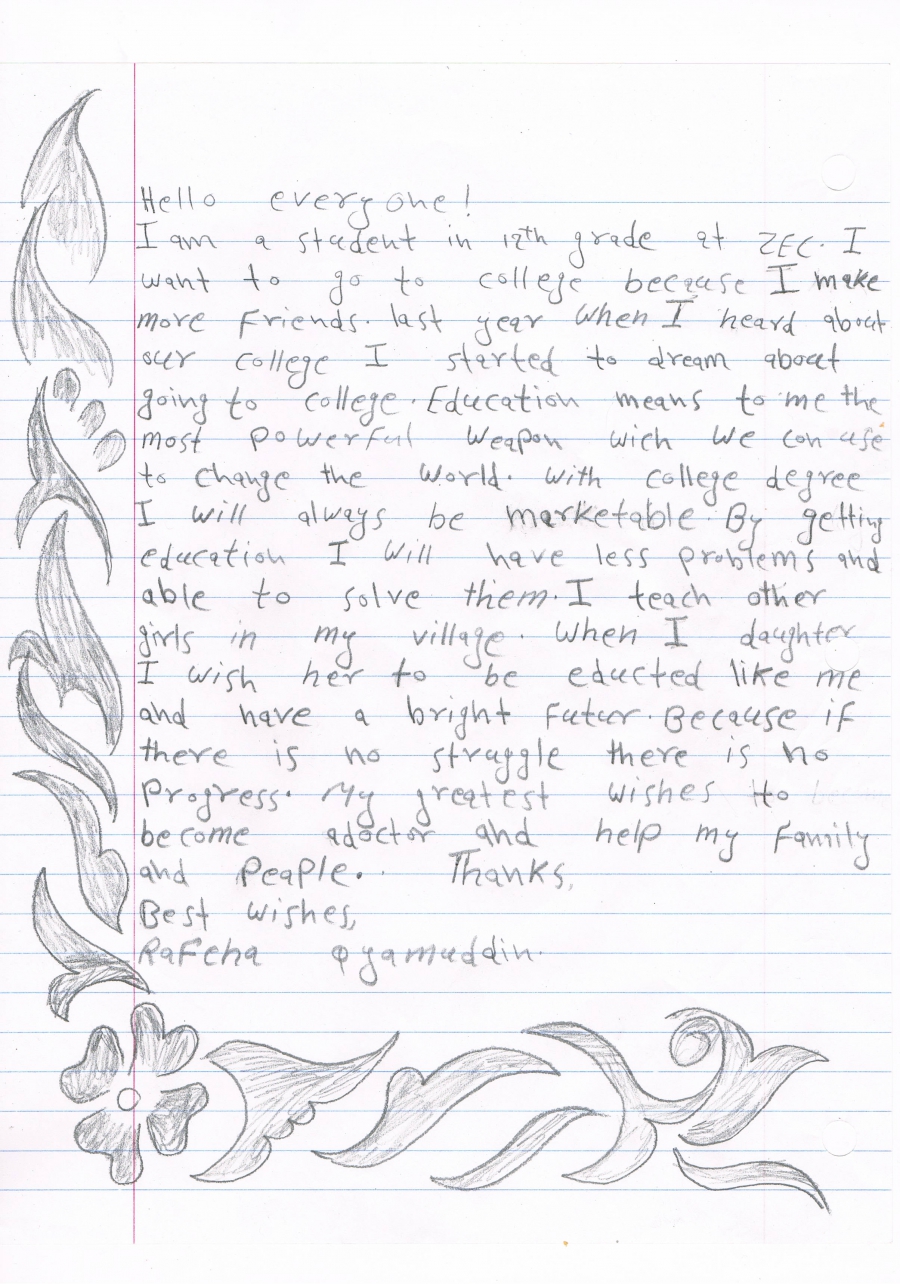 Hello everyone!
I am a student in 12th grade at ZEC. I
want to go to college because I make
more friends. last year when I heard about
our college I started to dream about
going to college. Education means to me the
most powerful weapon wich we can use
to change the world. with college degree
I will always be marketable. By getting
education I will have less problems and
able to solve them. I teach other
girls in my village. when I daughter
I wish her to be educted like me
and have a bright futur. Because if
there is no struggle there is no
progress. My greatest wishes to
become adoctor and help my family
and peaple. Thanks,
Best wishes,
Rafeha qyamuddin.